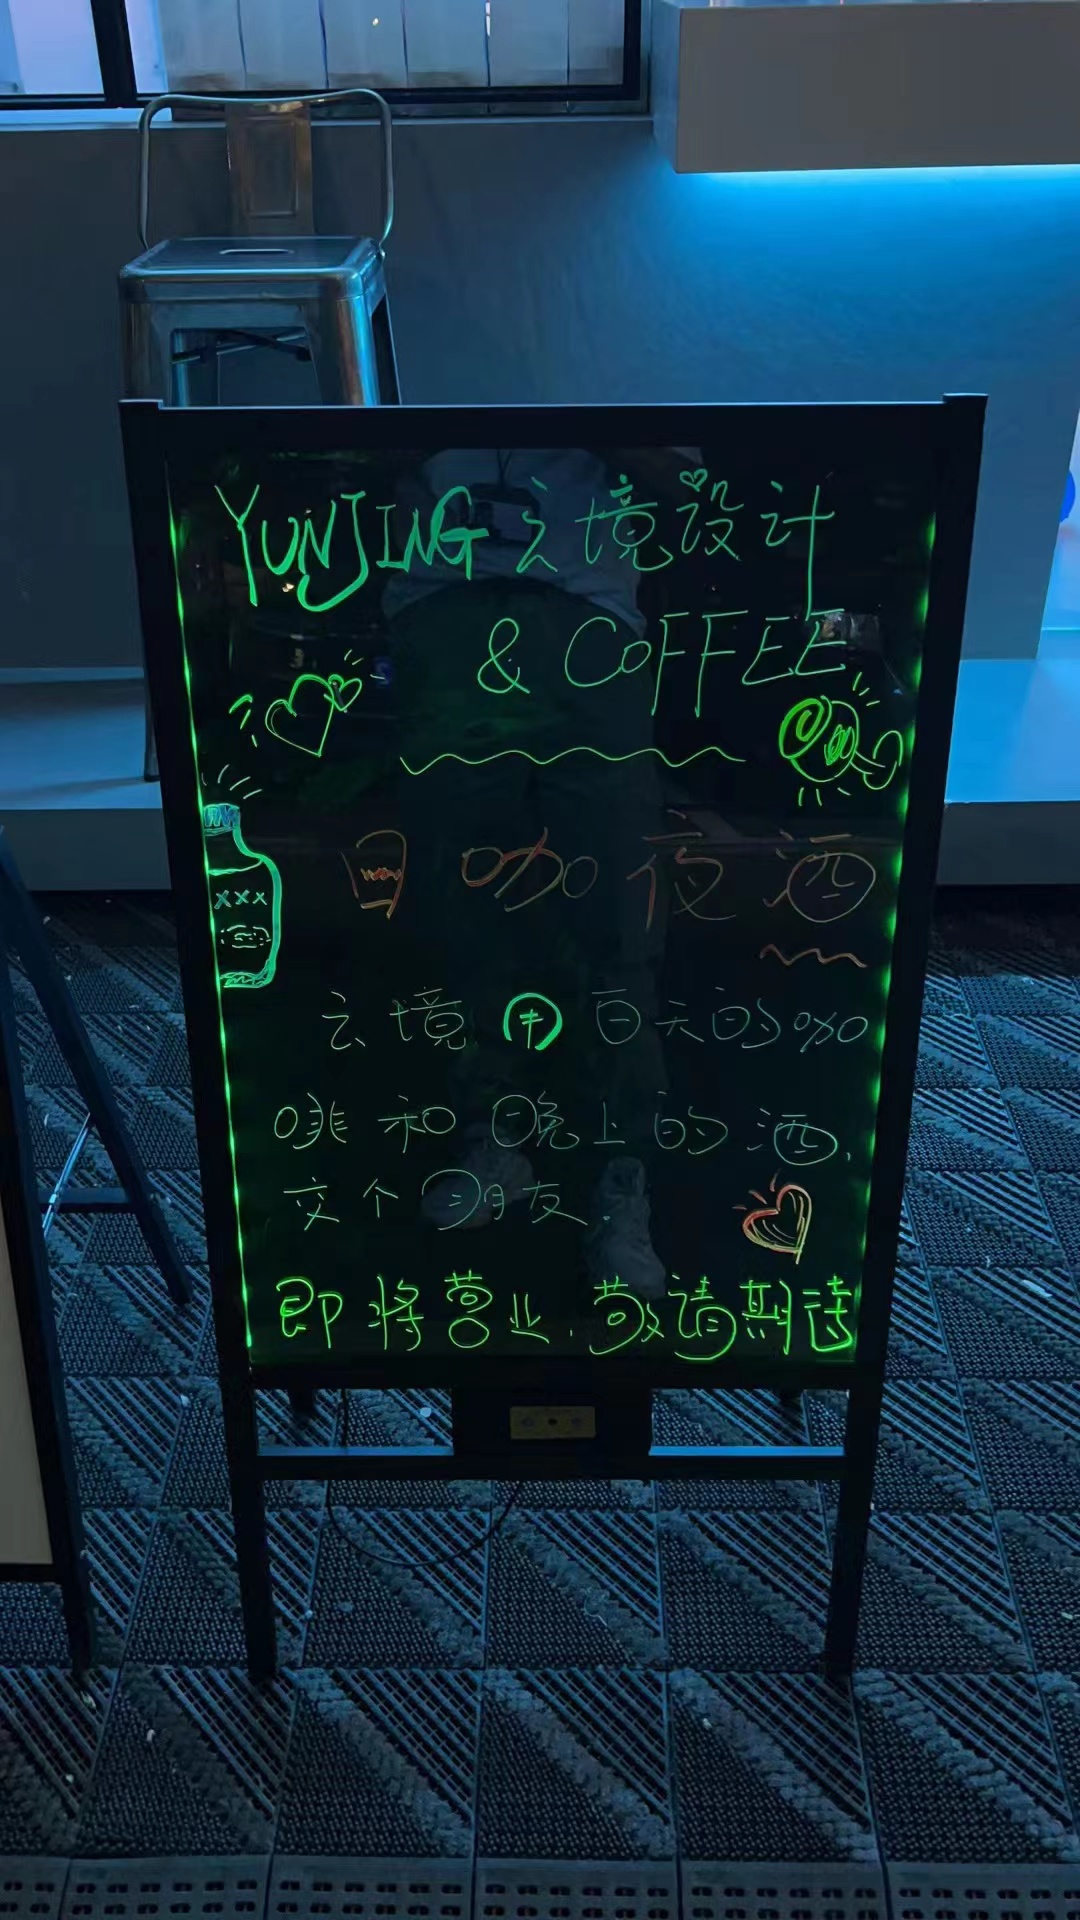 YUNJING 云境设计
& COFFEE
日咖夜酒
云境用白天的咖
啡和晚上的酒,
交个朋友.
即将营业,敬请期待
XXX